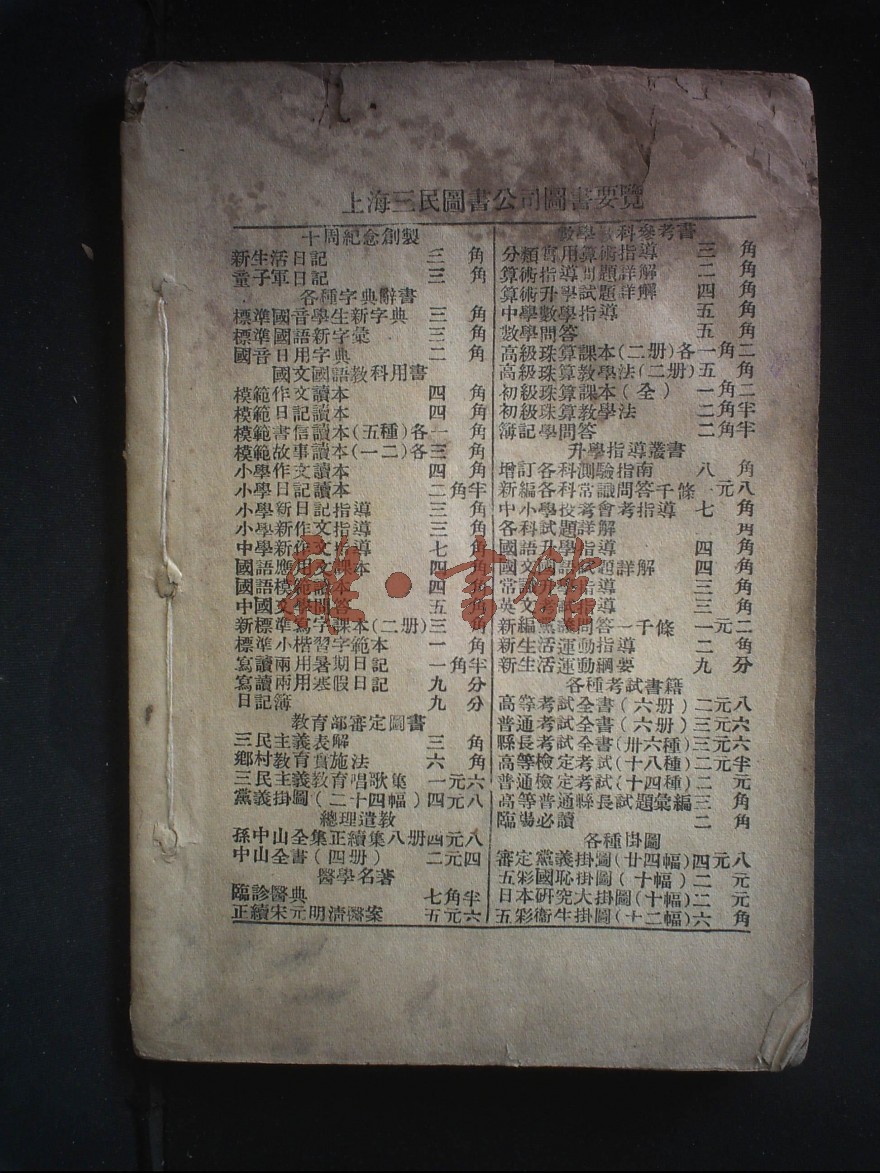 上海三民圖書公司圖書要覽
十周紀念創製
新生活日記 三角
童子軍日記 三角
各種字典辭書
標準國音學生新字典 三角
標準國語新字彙 三角
國音日用字典 二角
國文國語教科用書
模範作文讀本 四角
模範日記讀本 四角
模範書信讀本(五種)各一角
模範故事讀本(一二)各三角
小學作文讀本 四角
小學日記讀本 二角半
小學新日記指導 三角
小學新作文指導 三角
中學新作文指導 七角
國語應用文課本 四角
國語模範讀本 四角
中國文學問答 五角
新標準寫字課本(二册)三角
標準小楷習字範本 一角
寫讀兩用暑期日記 一角半
寫讀兩用寒假日記 九分
日記簿 九分
教育部審定圖書
三民主義表解 三角
鄉村教育實施法 六角
三民主義教育唱歌集 一元六
黨義掛圖(二十四幅)四元八
總理遺教
孫中山全集正續集八册四元八
中山全書(四册) 二元四
醫學名著
臨診醫典 七角半
正續宋元明清醫案 五元六
數學教科參考書
分類實用算術指導 三角
算術指導問題詳解 二角
算術升學試題詳解 四角
中學數學指導 五角
數學問答 五角
高級珠算課本(二册)各一角二
高級珠算教學法(二册)五角
初級珠算課本(全) 一角二
初級珠算教學法 二角半
簿記學問答 二角半
升學指導叢書
增訂各科測驗指南 八角
新編各科常識問答千條 一元八
中小學投考會考指導 七角
各科試題詳解 角
國語升學指導 四角
國文國語試題詳解 四角
常識升學指導 三角
英文考試指導 三角
新編黨義問答一千條 一元二
新生活運動指導 二角
新生活運動綱要 九分
各種考試書籍
高等考試全書(六册)二元八
普通考試全書(六册)三元六
縣長考試全書(卅六種)三元六
高等檢定考試(十八種)二元半
普通檢定考試(十四種)二元
高等普通縣長試題彙編三角
臨場必讀 二角
各種掛圖
審定黨義掛圖(廿四幅)四元八
五彩國恥掛圖(十幅)二元
日本研究大掛圖(十幅)二元
五彩衛生掛圖(十二幅)六角
雜·書館